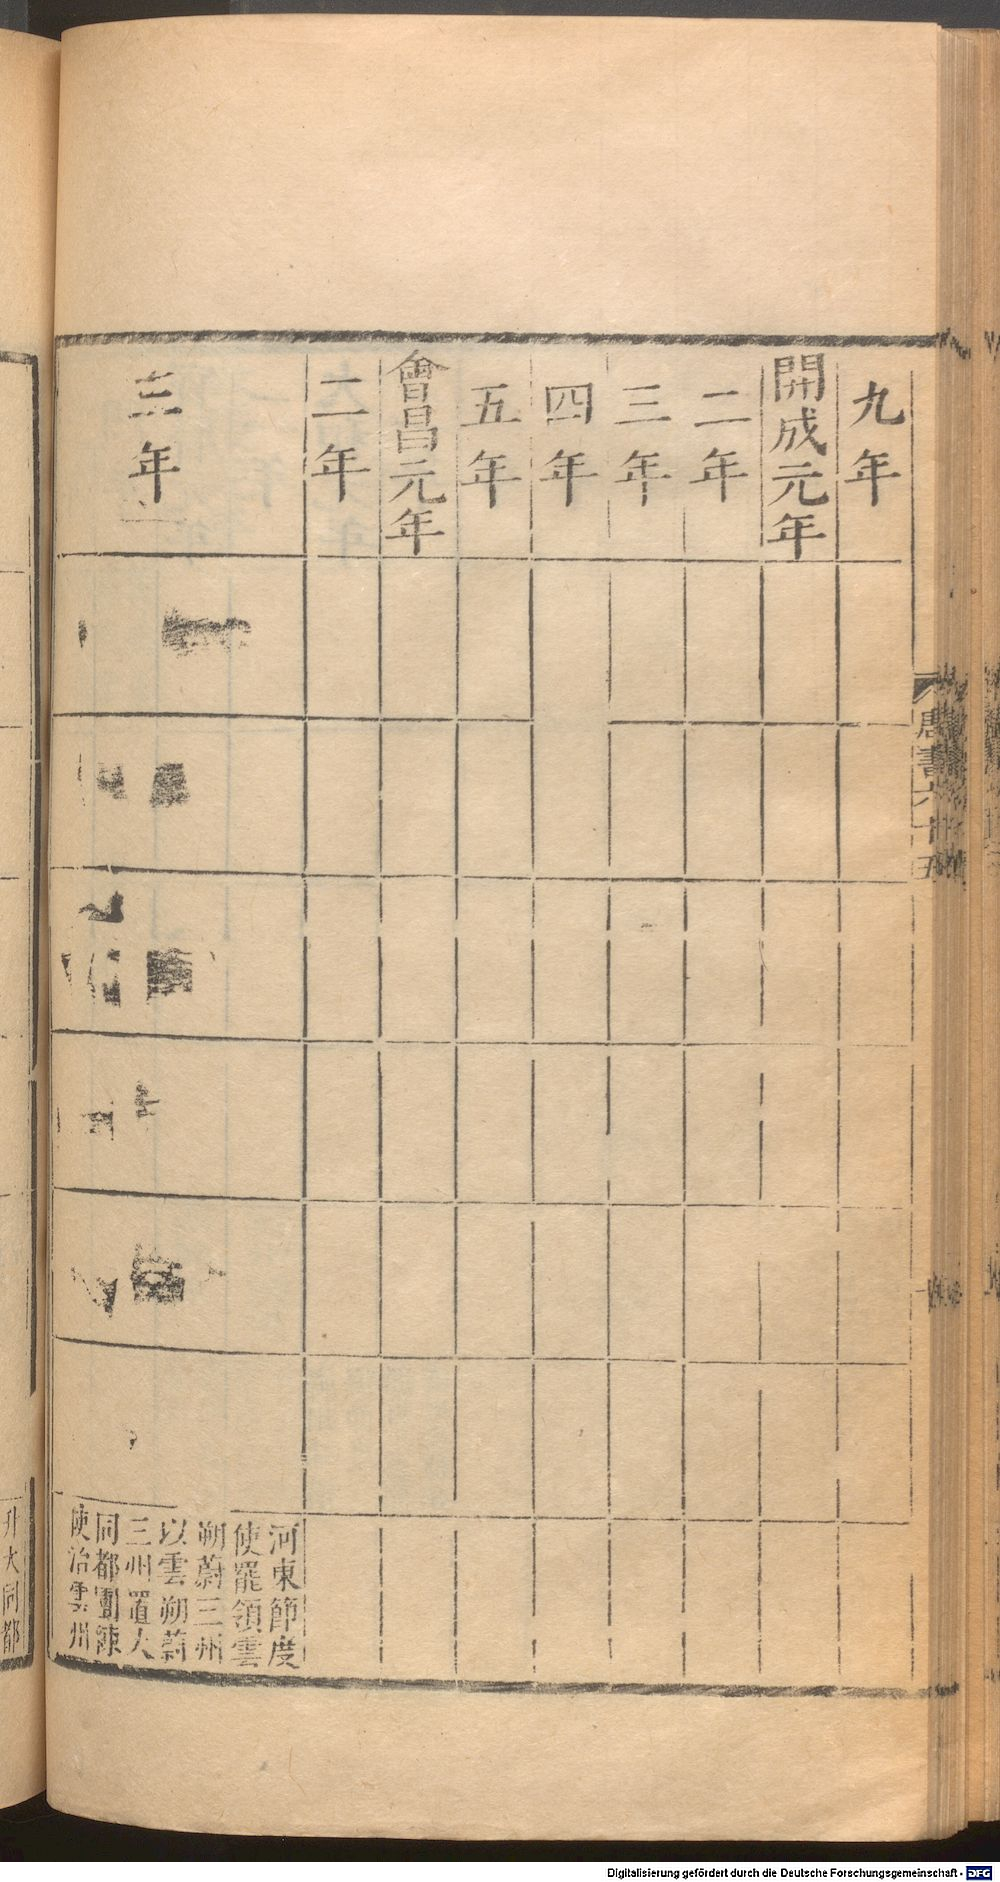 九年
開成元年
二年
三年
四年
五年
會昌元年
二年
三年
河東節度
使罷領雲
朔蔚三州
以雲朔蔚
三州置大
同都團練
使治雲州
唐書六十五
升大同都
Digitalisierung gefördert durch die Deutsche Forschungsgemeinschaft - DFG